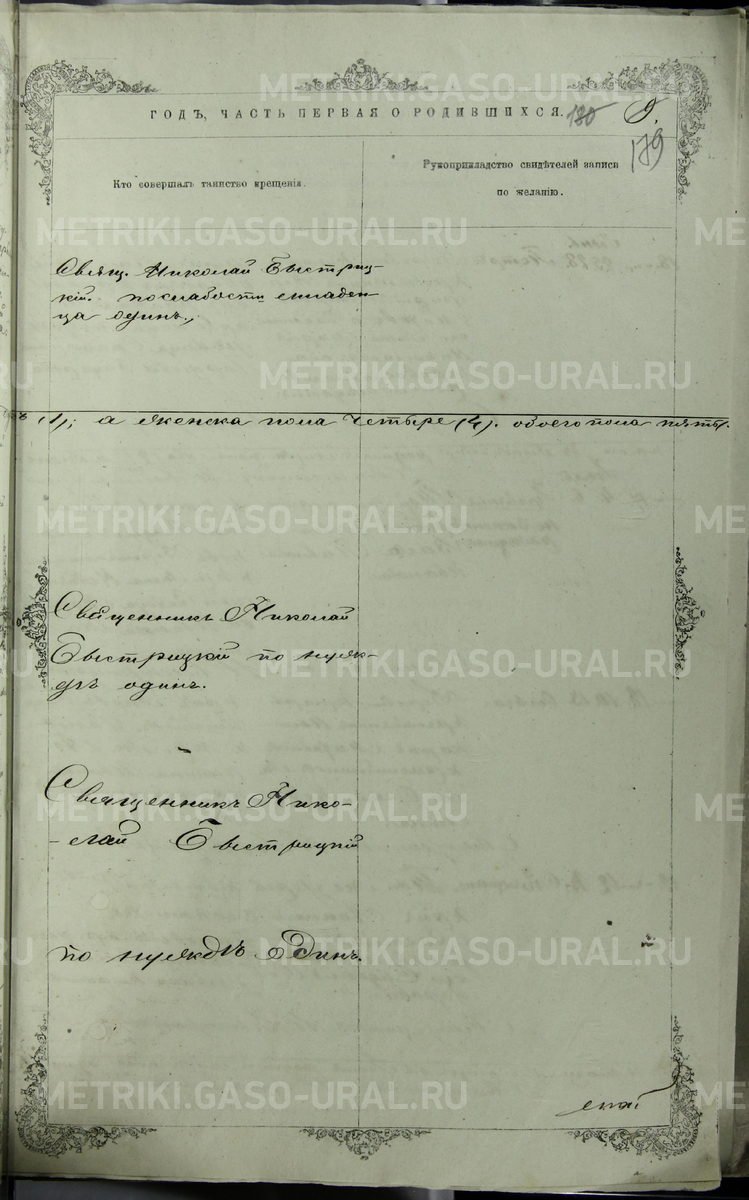 METRIKI.GASO-URAL.RU
ГОДЪ, ЧАСТЬ ПЕРВАЯ О РОДИВШИХСЯ. 180 9.
179
Кто совершалъ таинство крещенія.
Рукоприкладство свидѣтелей записи
по желанію.
METRIKI.GASO-URAL.RU
Свящ. Николай Быстриц-
кій. по слабости младен-
ца одинъ.
METRIKI.GASO-URAL.RU
ъ (1); а женска пола четыре (4). обоего пола пять.
METRIKI.GASO-URAL.RU
Священникъ Николай
Быстрицкій по нуж-
дѣ одинъ.
METRIKI.GASO-URAL.RU
Священникъ Нико-
лай Быстрицкій
METRIKI.GASO-URAL.RU
по нуждѣ одинъ.
METRIKI.GASO-URAL.RU
METRIKI.GASO-URAL.RU